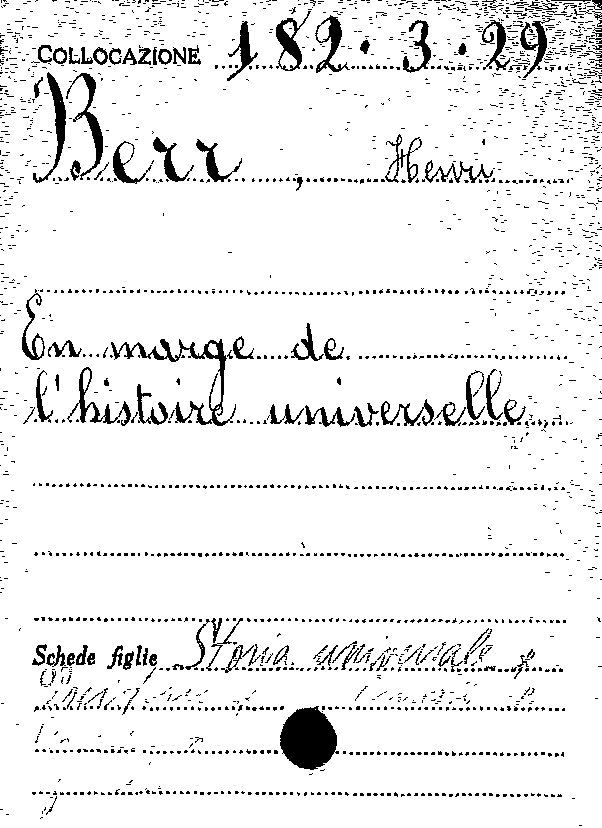 COLLOCAZIONE 182.3.29
Berr, Henri
En marge de
l'histoire universelle
Schede figlie Storia universale